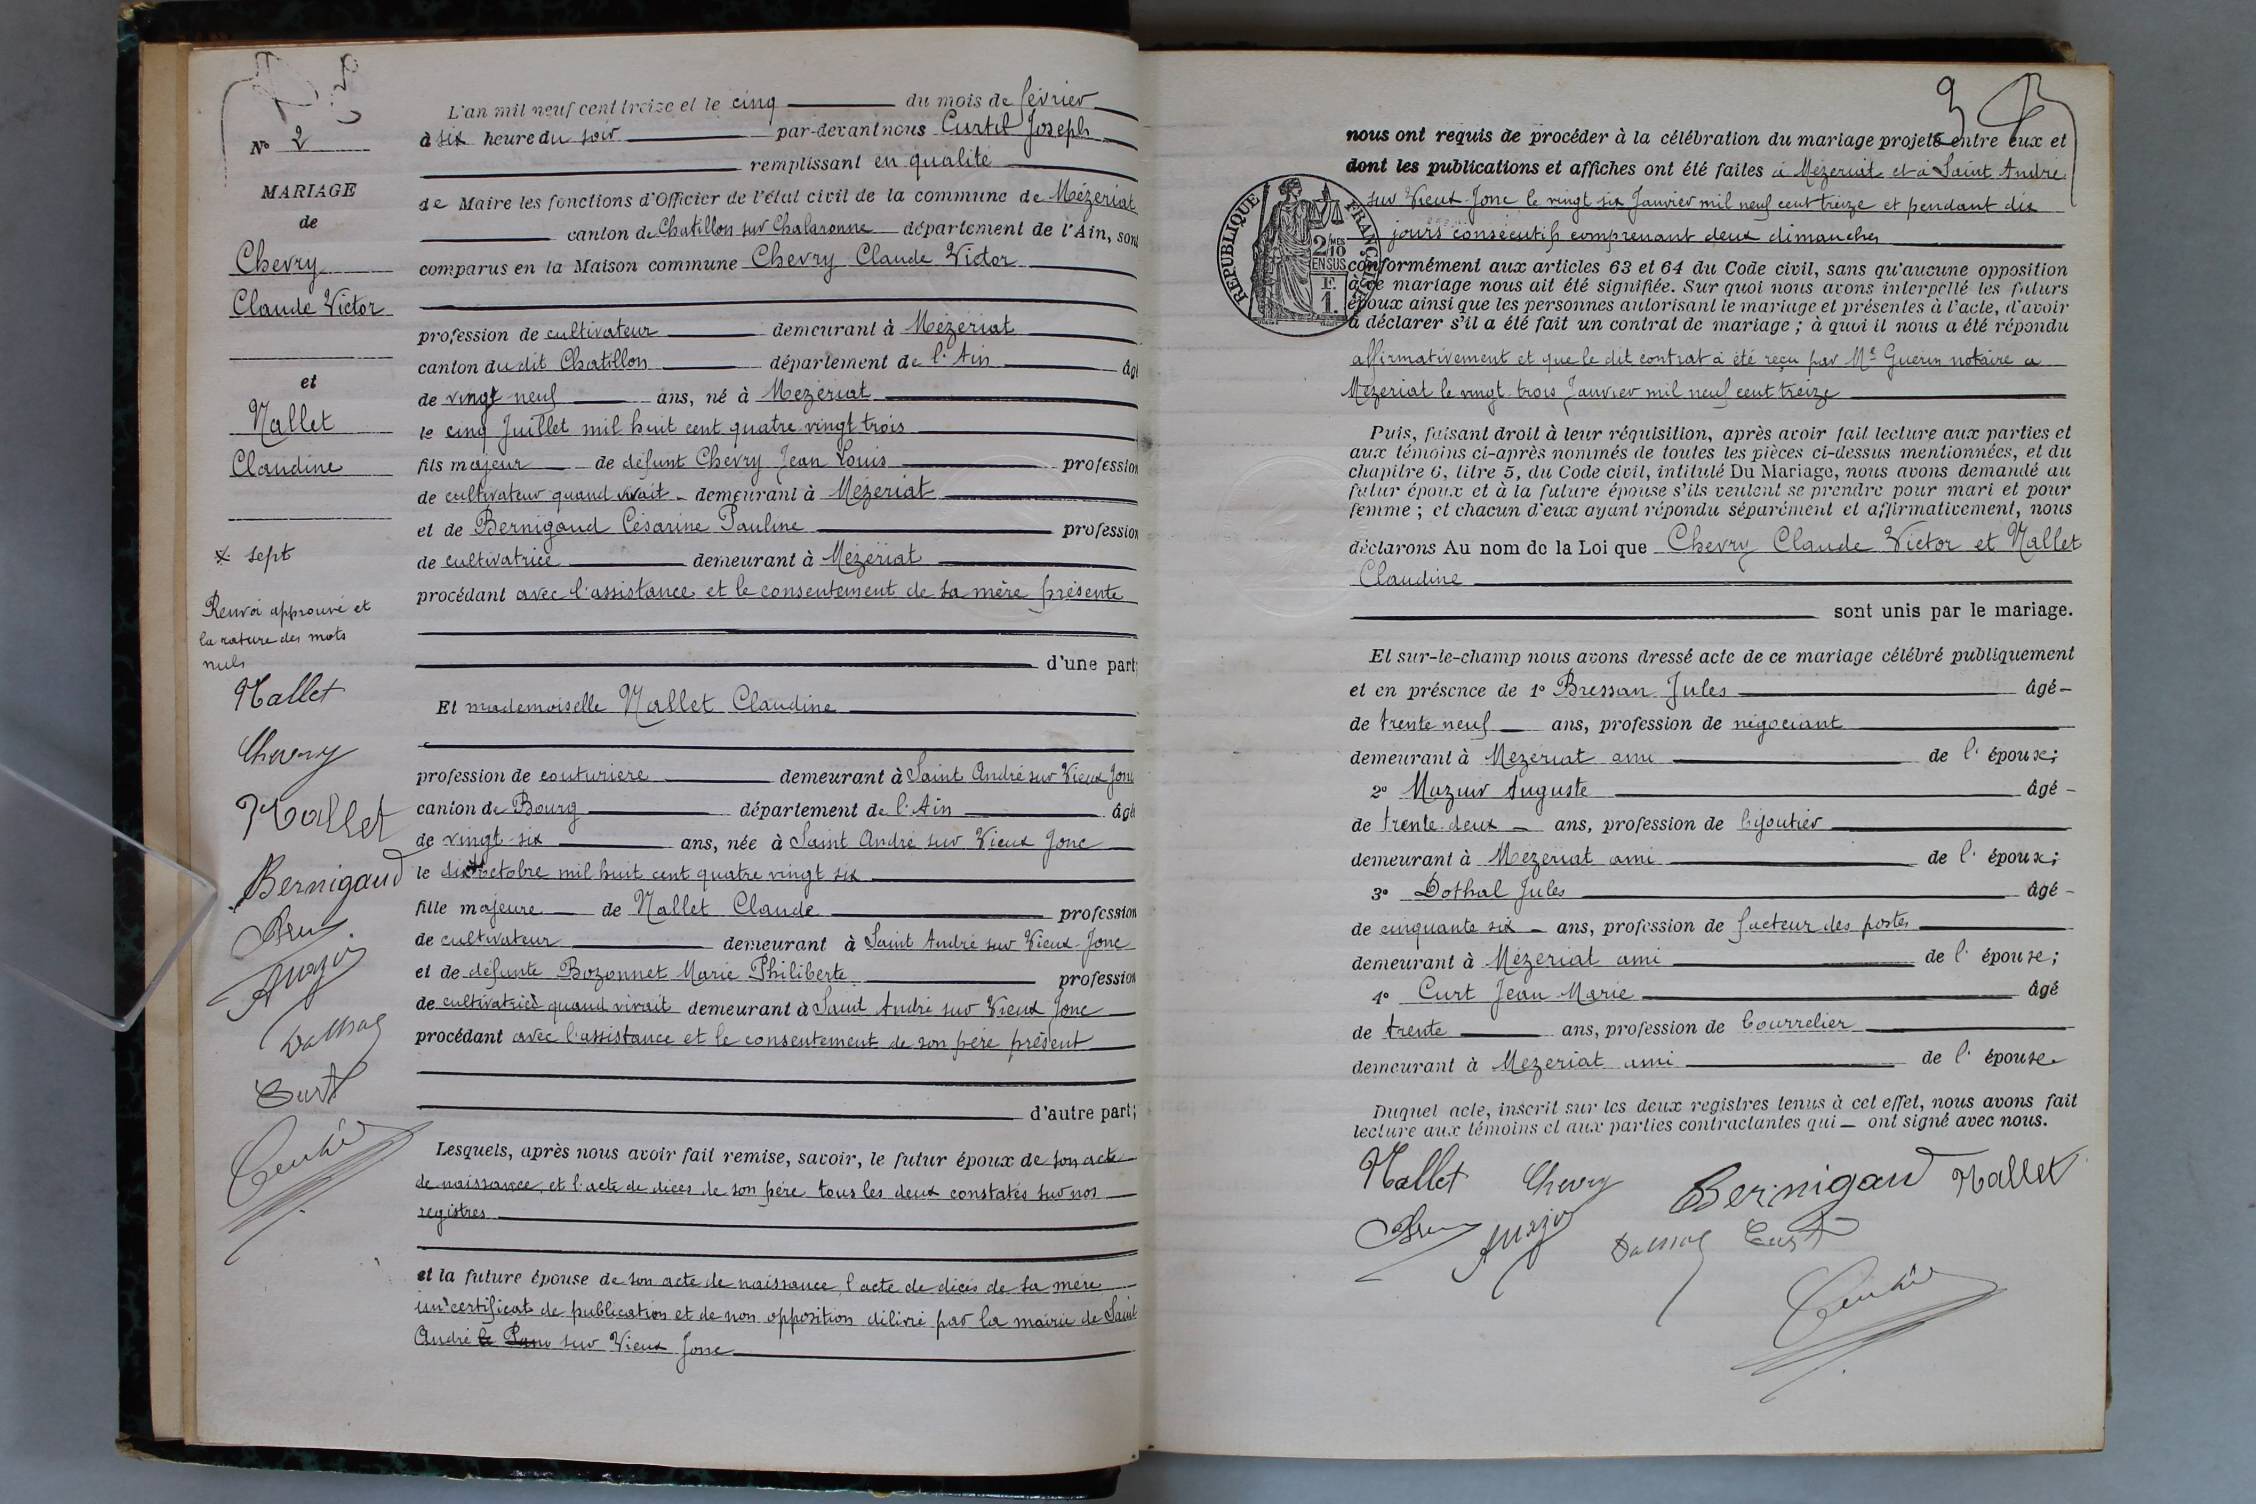 N° 2
MARIAGE
de
Chevry
Claude Victor
et
Nallet
Claudine
x sept
Renvoi approuvé et
la rature des mots
nuls
Nallet
Chevry
Nallet
Bernigaud
Curt
L'an mil neuf cent treize et le cinq du mois de février
à six heure du soir par-devant nous Curtil Joseph
remplissant en qualité
de Maire les fonctions d'Officier de l'état civil de la commune de Mézériat
canton de Chatillon sur Chalaronne département de l'Ain, sont
comparus en la Maison commune Chevry Claude Victor
profession de cultivateur demeurant à Mézériat
canton du dit Chatillon département de l'Ain âgé
de vingt neuf ans, né à Mézériat
le cinq Juillet mil huit cent quatre vingt trois
fils majeur de défunt Chevry Jean Louis profession
de cultivateur quand vivait demeurant à Mézériat
et de Bernigaud Césarine Pauline profession
de cultivatrice demeurant à Mézériat
procédant avec l'assistance et le consentement de sa mère présente
d'une part;
Et mademoiselle Nallet Claudine
profession de couturière demeurant à Saint André sur Vieux Jonc
canton de Bourg département de l'Ain âgé
de vingt-six ans, née à Saint André sur Vieux Jonc
le dix x octobre mil huit cent quatre vingt six
fille majeure de Nallet Claude profession
de cultivateur demeurant à Saint André sur Vieux-Jonc
et de défunte Bozonnet Marie Philiberte profession
de cultivatrice quand vivait demeurant à Saint André sur Vieux Jonc
procédant avec l'assistance et le consentement de son père présent
d'autre part;
Lesquels, après nous avoir fait remise, savoir, le futur époux de son acte
de naissance, et l'acte de décès de son père tous les deux constatés sur nos
registres
et la future épouse de son acte de naissance, l'acte de décès de sa mère
un certificat de publication et de non opposition délivré par la mairie de Saint
André le Pano sur Vieux Jonc
3
nous ont requis de procéder à la célébration du mariage projeté entre eux et
dont les publications et affiches ont été faites à Mézériat et à Saint André
sur Vieux-Jonc le vingt six Janvier mil neuf cent treize et pendant dix
jours consécutifs comprenant deux dimanches
RÉPUBLIQUE FRANÇAISE
2/10
MES
EN SUS
F.
1.
conformément aux articles 63 et 64 du Code civil, sans qu'aucune opposition
à ce mariage nous ait été signifiée. Sur quoi nous avons interpellé les futurs
époux ainsi que les personnes autorisant le mariage et présentes à l'acte, d'avoir
à déclarer s'il a été fait un contrat de mariage; à quoi il nous a été répondu
affirmativement et que le dit contrat a été reçu par Me Guérin notaire a
Mézériat le vingt trois Janvier mil neuf cent treize
Puis, faisant droit à leur réquisition, après avoir fait lecture aux parties et
aux témoins ci-après nommés de toutes les pièces ci-dessus mentionnées, et du
chapitre 6, titre 5, du Code civil, intitulé Du Mariage, nous avons demandé au
futur époux et à la future épouse s'ils veulent se prendre pour mari et pour
femme; et chacun d'eux ayant répondu séparément et affirmativement, nous
déclarons Au nom de la Loi que Chevry Claude Victor et Nallet
Claudine
sont unis par le mariage.
Et sur-le-champ nous avons dressé acte de ce mariage célébré publiquement
et en présence de 1° Bressan Jules âgé
de trente neuf ans, profession de négociant
demeurant à Mézériat ami de l'épouse;
2° Mazuir Auguste âgé
de trente-deux ans, profession de bijoutier
demeurant à Mézériat ami de l'époux;
3° Dothal Jules âgé
de cinquante six ans, profession de facteur des postes
demeurant à Mézériat ami de l'épouse;
4° Curt Jean Marie âgé
de trente ans, profession de bourrelier
demeurant à Mézériat ami de l'épouse
Duquel acte, inscrit sur les deux registres tenus à cet effet, nous avons fait
lecture aux témoins et aux parties contractantes qui ont signé avec nous.
Nallet Chevry Bernigaud Nallet
Curt